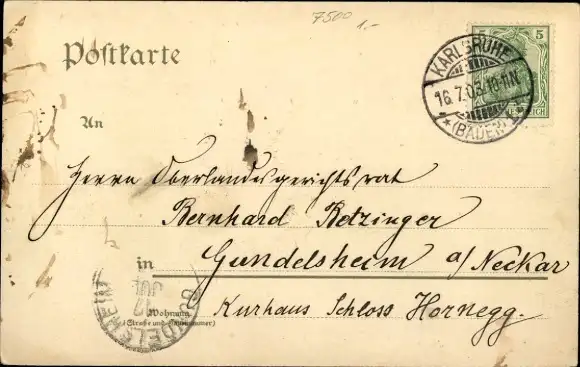 7500 1.-
Postkarte
5
KARLSRUHE
16.7.03.10-11N.
*(BADEN)*
An
Herrn Oberlandesgerichtsrat
Bernhard Betzinger
in Gundelsheim a/Neckar
Wohnung
(Straße und Hausnummer)
Kurhaus Schloss Hornegg.